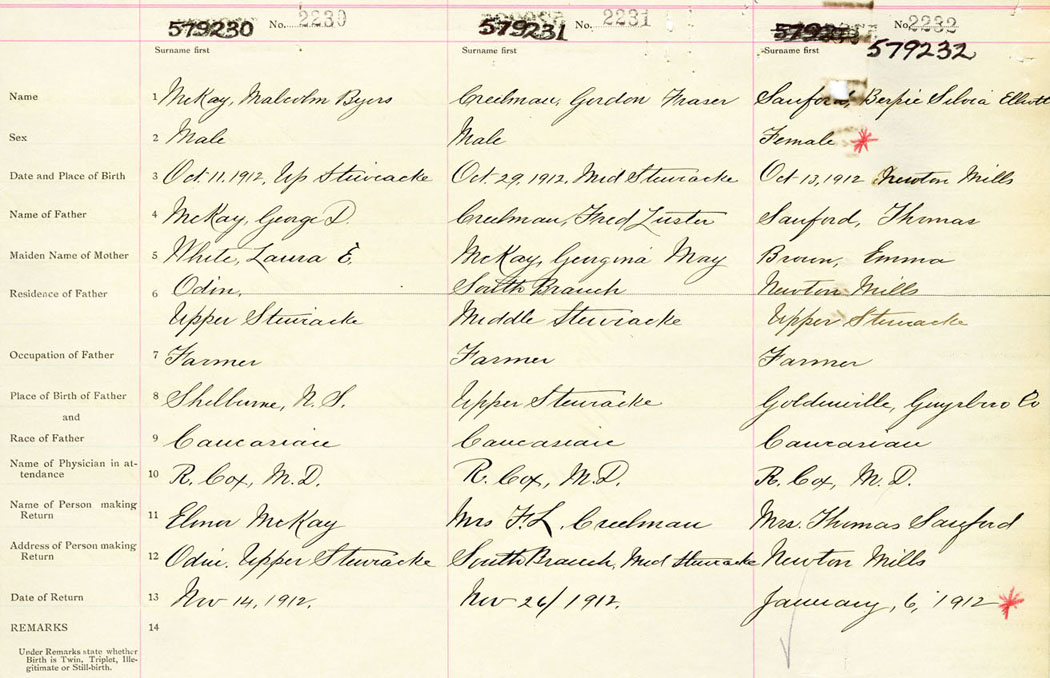 579230 No. 2230 579231 No. 2231 No. 2232
579232
Surname first Surname first Surname first
Name 1 McKay, Malcolm Byers Creelman, Gordon Fraser Sanford, Bessie Silvia Elliott
Sex 2 Male Male Female
Date and Place of Birth 3 Oct. 11, 1912, Up Stewiacke Oct. 29, 1912, Mid Stewiacke Oct 13, 1912 Newton Mills
Name of Father 4 McKay, George D. Creelman, Fred Luster Sanford, Thomas
Maiden Name of Mother 5 White, Laura E. McKay, Georgina May Brown, Emma
Residence of Father 6 Odin, South Branch Newton Mills
Upper Stewiacke Middle Stewiacke Upper Stewiacke
Occupation of Father 7 Farmer Farmer Farmer
Place of Birth of Father 8 Shelburne, N.S. Upper Stewiacke Goldenville, Guysboro Co
and
Race of Father 9 Caucasian Caucasian Caucasian
Name of Physician in at-
tendance 10 R. Cox, M.D. R. Cox, M.D. R. Cox, M.D.
Name of Person making
Return 11 McKay Mrs F.L. Creelman Mrs. Thomas Sanford
Address of Person making
Return 12 Odin, Upper Stewiacke South Branch, Mid Stewiacke Newton Mills
Date of Return 13 Nov 14, 1912. Nov 26/1912. January, 6, 1912
REMARKS 14
Under Remarks state whether
Birth is Twin, Triplet, Ille-
gitimate or Still-birth.